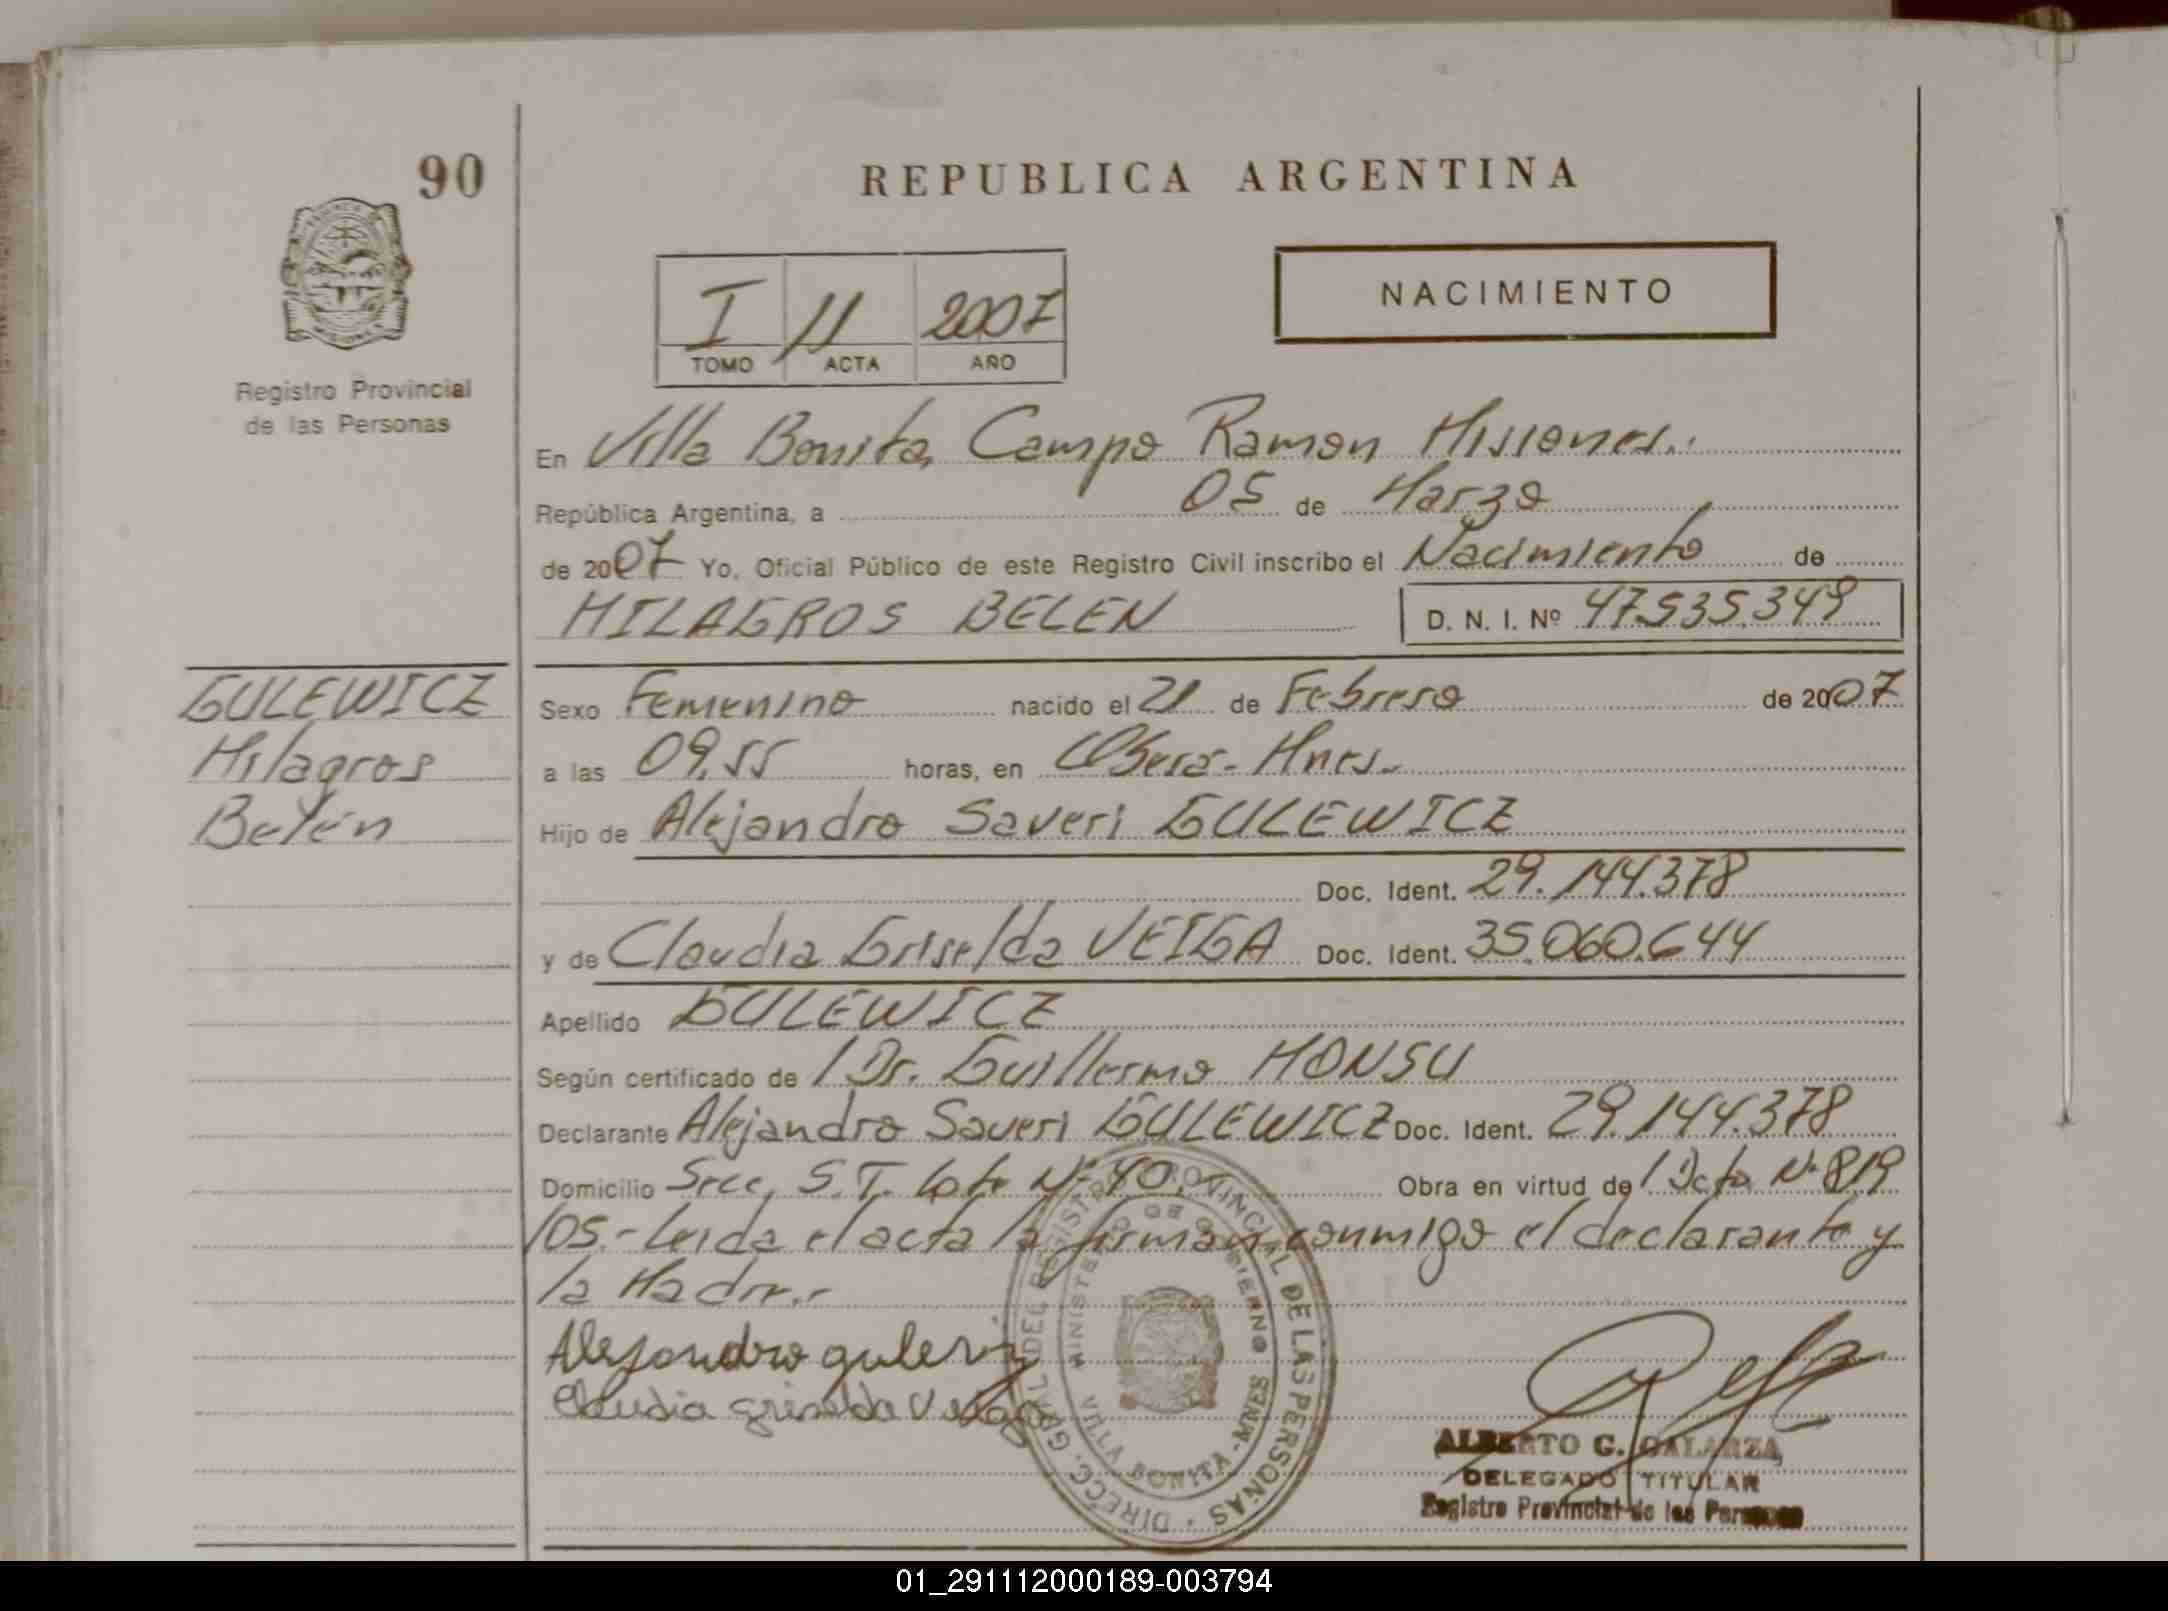 90
REPUBLICA ARGENTINA
I 11 2007
TOMO ACTA AÑO
NACIMIENTO
Registro Provincial
de las Personas
En Villa Bonita, Campo Ramon Misiones.
República Argentina, a 05 de Marzo
de 2007 Yo, Oficial Público de este Registro Civil inscribo el Nacimiento de
MILAGROS BELEN D. N. I. Nº 47.535.349
GULEWICZ
Milagros
Belén
Sexo Femenino nacido el 21 de Febrero de 2007
a las 09.55 horas, en Oberá-Mnes.
Hijo de Alejandro Saveri GULEWICZ
Doc. Ident. 29.144.378
y de Claudia Griselda VEIGA Doc. Ident. 35.060.644
Apellido GULEWICZ
Según certificado de / Dr. Guillermo MONSU
Declarante Alejandro Saveri GULEWICZ Doc. Ident. 29.144.378
Domicilio Secc. S.T. Lote Nº 40. Obra en virtud de / Dcto Nº 819
/05.- Leida el acta la firman conmigo el declarante y
la Madre.-
Claudia griselda Veiga
DIRECC. GRAL DEL REGISTRO PROVINCIAL DE LAS PERSONAS
MINISTERIO DE GOBIERNO
VILLA BONITA - MNES
ALBERTO G. GALARZA
DELEGADO TITULAR
Registro Provincial de las Personas
01_291112000189-003794